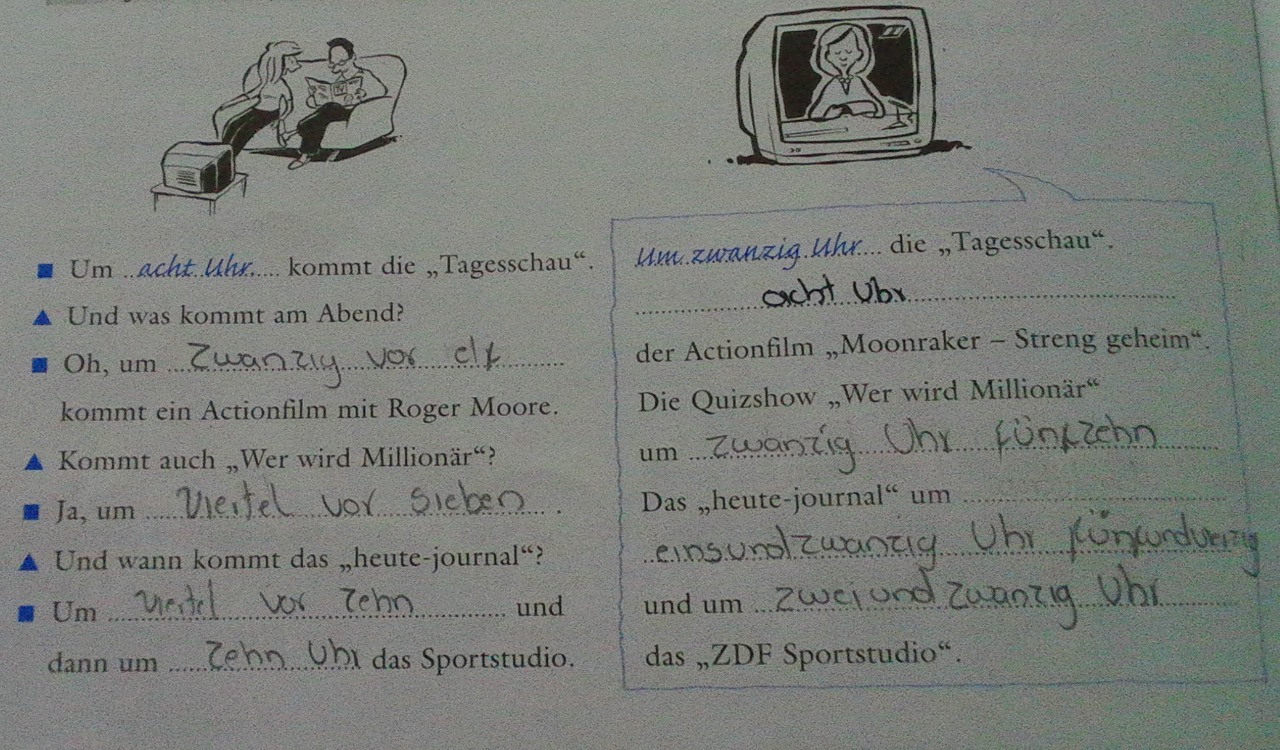 Um acht Uhr kommt die „Tagesschau“.
Und was kommt am Abend?
Oh, um zwanzig vor elf
kommt ein Actionfilm mit Roger Moore.
Kommt auch „Wer wird Millionär“?
Ja, um Viertel vor sieben.
Und wann kommt das „heute-journal“?
Um Viertel vor zehn und
dann um zehn Uhr das Sportstudio.
Um zwanzig Uhr die „Tagesschau“.
acht Uhr
der Actionfilm „Moonraker – Streng geheim“.
Die Quizshow „Wer wird Millionär“
um zwanzig Uhr fünfzehn
Das „heute-journal“ um
einsundzwanzig Uhr fünfundvierzig
und um zweiundzwanzig Uhr
das „ZDF Sportstudio“.